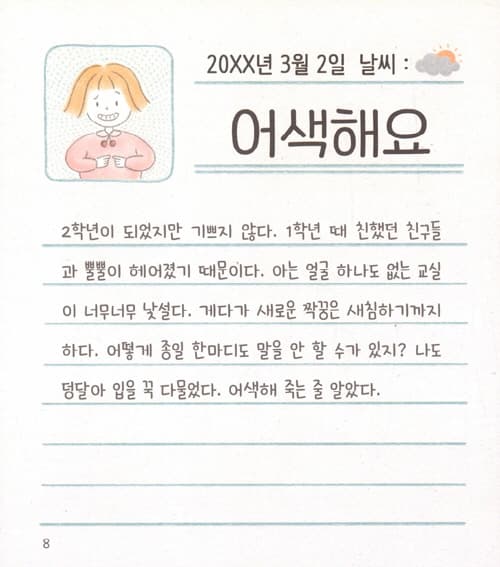 20XX년 3월 2일 날씨 :
어색해요
2학년이 되었지만 기쁘지 않다. 1학년 때 친했던 친구들
과 뿔뿔이 헤어졌기 때문이다. 아는 얼굴 하나도 없는 교실
이 너무너무 낯설다. 게다가 새로운 짝꿍은 새침하기까지
하다. 어떻게 종일 한마디도 말을 안 할 수가 있지? 나도
덩달아 입을 꾹 다물었다. 어색해 죽는 줄 알았다.
8